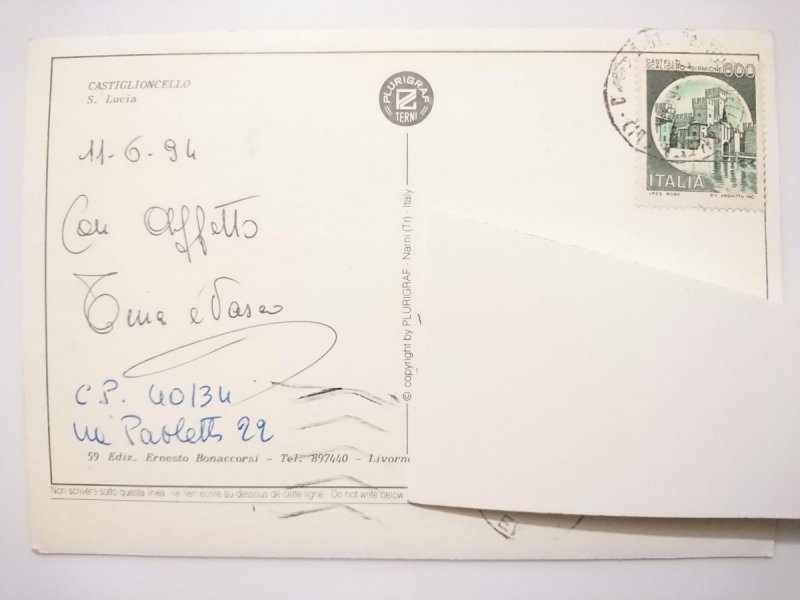 CASTIGLIONCELLO
S. Lucia
PLURIGRAF
TERNI
CASTELLO
SCALIGERO SIRMIONE 600
ITALIA
I.P.Z.S. ROMA
11-6-94
Con affetto
Tina e Vasco
C.P. 40/34
via Paoletti 22
© copyright by PLURIGRAF - Narni (Tr) - Italy
59 Ediz. Ernesto Bonaccorsi - Tel. 897440 - Livorno
Non scrivere sotto questa linea - ne rien écrire au-dessous de cette ligne - Do not write below